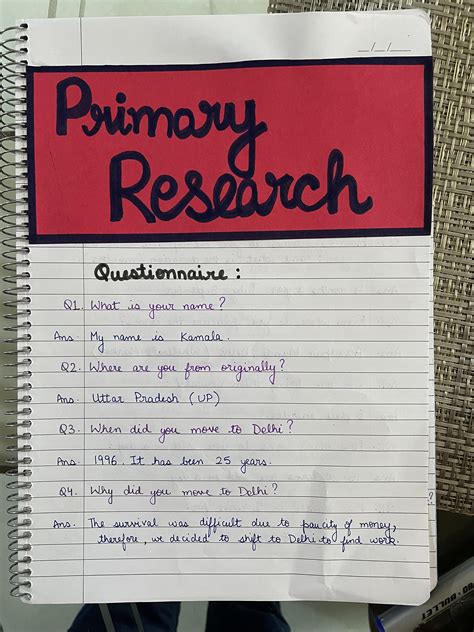 __/__/__
Primary
Research
Questionnaire :
Q1. What is your name ?
Ans. My name is Kamala.
Q2. Where are you from originally?
Ans. Uttar Pradesh (UP)
Q3. When did you move to Delhi ?
Ans. 1996. It has been 25 years.
Q4. Why did you move to Delhi?
Ans. The survival was difficult due to paucity of money,
therefore, we decided to shift to Delhi to find work.